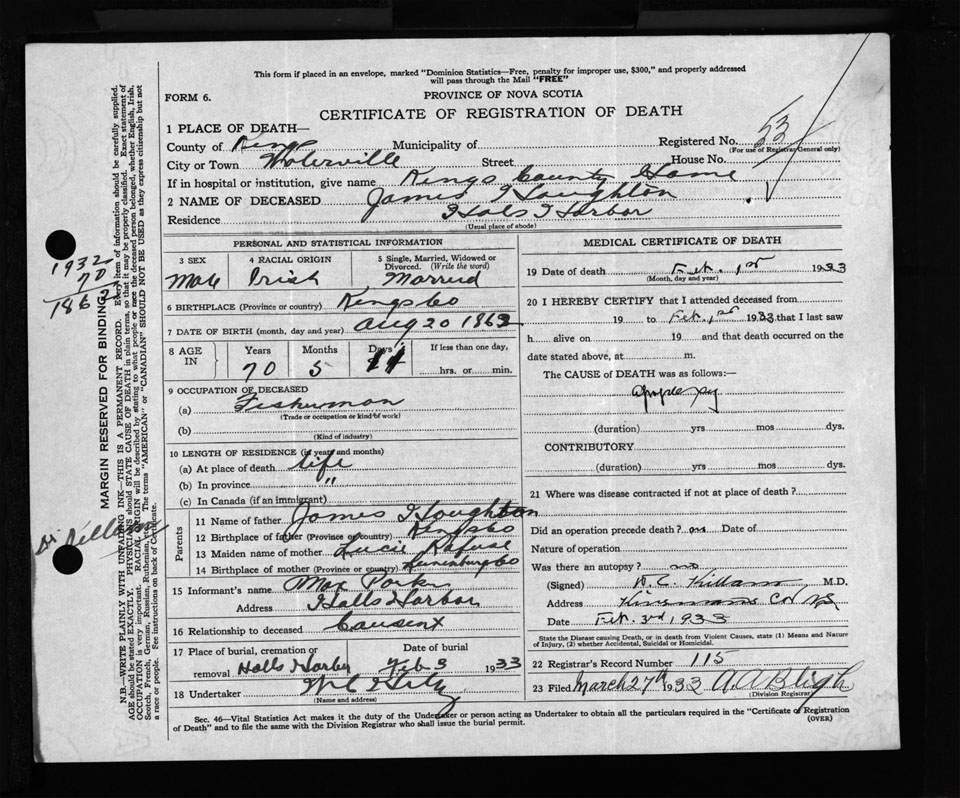 This form if placed in an envelope, marked "Dominion Statistics—Free, penalty for improper use, $300," and properly addressed
will pass through the Mail "FREE"
FORM 6.
PROVINCE OF NOVA SCOTIA
CERTIFICATE OF REGISTRATION OF DEATH
1 PLACE OF DEATH—
County of Kings Municipality of Registered No. 53
(For use of Registrar General only)
City or Town Waterville Street House No.
If in hospital or institution, give name Kings County Home
2 NAME OF DECEASED James Houghton
Residence Halls Harbor
(Usual place of abode)
PERSONAL AND STATISTICAL INFORMATION
3 SEX 4 RACIAL ORIGIN 5 Single, Married, Widowed or Divorced. (Write the word)
Male Irish Married
6 BIRTHPLACE (Province or country) Kings Co
7 DATE OF BIRTH (month, day and year) Aug 20 1862
8 AGE IN Years Months Days If less than one day,
70 5 11 hrs. or min.
9 OCCUPATION OF DECEASED
(a) Fisherman
(Trade or occupation or kind of work)
(b)
(Kind of industry)
10 LENGTH OF RESIDENCE (in years and months)
(a) At place of death life
(b) In province "
(c) In Canada (if an immigrant)
Parents
11 Name of father James Houghton
12 Birthplace of father (Province or country) Kings Co
13 Maiden name of mother Lucie Rafuse
14 Birthplace of mother (Province or country) Lunenburg Co
15 Informant's name Max Parker
Address Halls Harbor
16 Relationship to deceased
17 Place of burial, cremation or Date of burial
removal Halls Harbor Feb 3 1933
18 Undertaker
(Name and address)
MEDICAL CERTIFICATE OF DEATH
19 Date of death Feb. 1st 1933
(Month, day and year)
20 I HEREBY CERTIFY that I attended deceased from
19 to Feb. 1st 1933 that I last saw
h alive on 19 and that death occurred on the
date stated above, at m.
The CAUSE OF DEATH was as follows:—
Apoplexy
(duration) yrs mos dys.
CONTRIBUTORY
(duration) yrs mos dys.
21 Where was disease contracted if not at place of death?
Did an operation precede death? no Date of
Nature of operation
Was there an autopsy? no
(Signed) W. C. Killam M.D.
Address NS
Date Feb. 3rd 1933
State the Disease causing Death, or in death from Violent Causes, state (1) Means and Nature
of Injury, (2) whether Accidental, Suicidal or Homicidal.
22 Registrar's Record Number 115
23 Filed March 27th 1933 A A Bligh
(Division Registrar)
Sec. 46—Vital Statistics Act makes it the duty of the Undertaker or person acting as Undertaker to obtain all the particulars required in the "Certificate of Registration
of Death" and to file the same with the Division Registrar who shall issue the burial permit.
(OVER)
1932
70
1862
Dr Killam
MARGIN RESERVED FOR BINDING
N.B.—WRITE PLAINLY WITH UNFADING INK—THIS IS A PERMANENT RECORD. Every item of information should be carefully supplied.
AGE should be stated EXACTLY. PHYSICIANS should STATE CAUSE OF DEATH in plain terms, so that it may be properly classified. Exact statement of
OCCUPATION is very important. RACIAL ORIGIN will be described by stating to what people or race the deceased person belonged, whether English, Irish,
Scotch, French, German, Russian, Ruthenian, etc. The terms "AMERICAN" or "CANADIAN" SHOULD NOT BE USED as they express citizenship but not
a race or people. See instructions on back of Certificate.